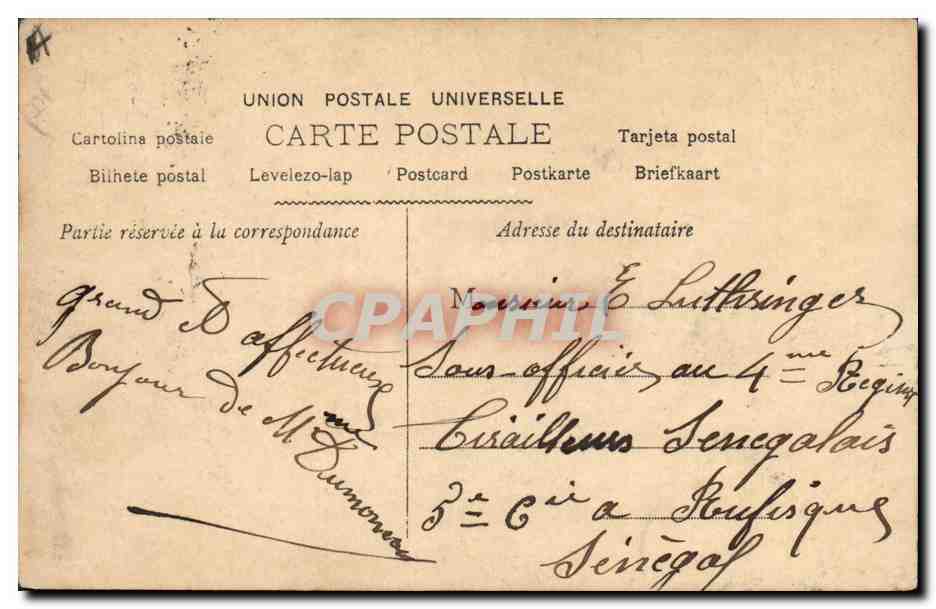 UNION POSTALE UNIVERSELLE
Cartolina postale CARTE POSTALE Tarjeta postal
Bilhete postal Levelezo-lap Postcard Postkarte Briefkaart
Partie réservée à la correspondance
Adresse du destinataire
grand et affectueux
Bonjour de Mme
Monsieur E Luthringer
Sous-officier au 4me Régim
Tirailleurs Senegalais
3e Cie a Rufisque
Sénégal
CPAPHIL